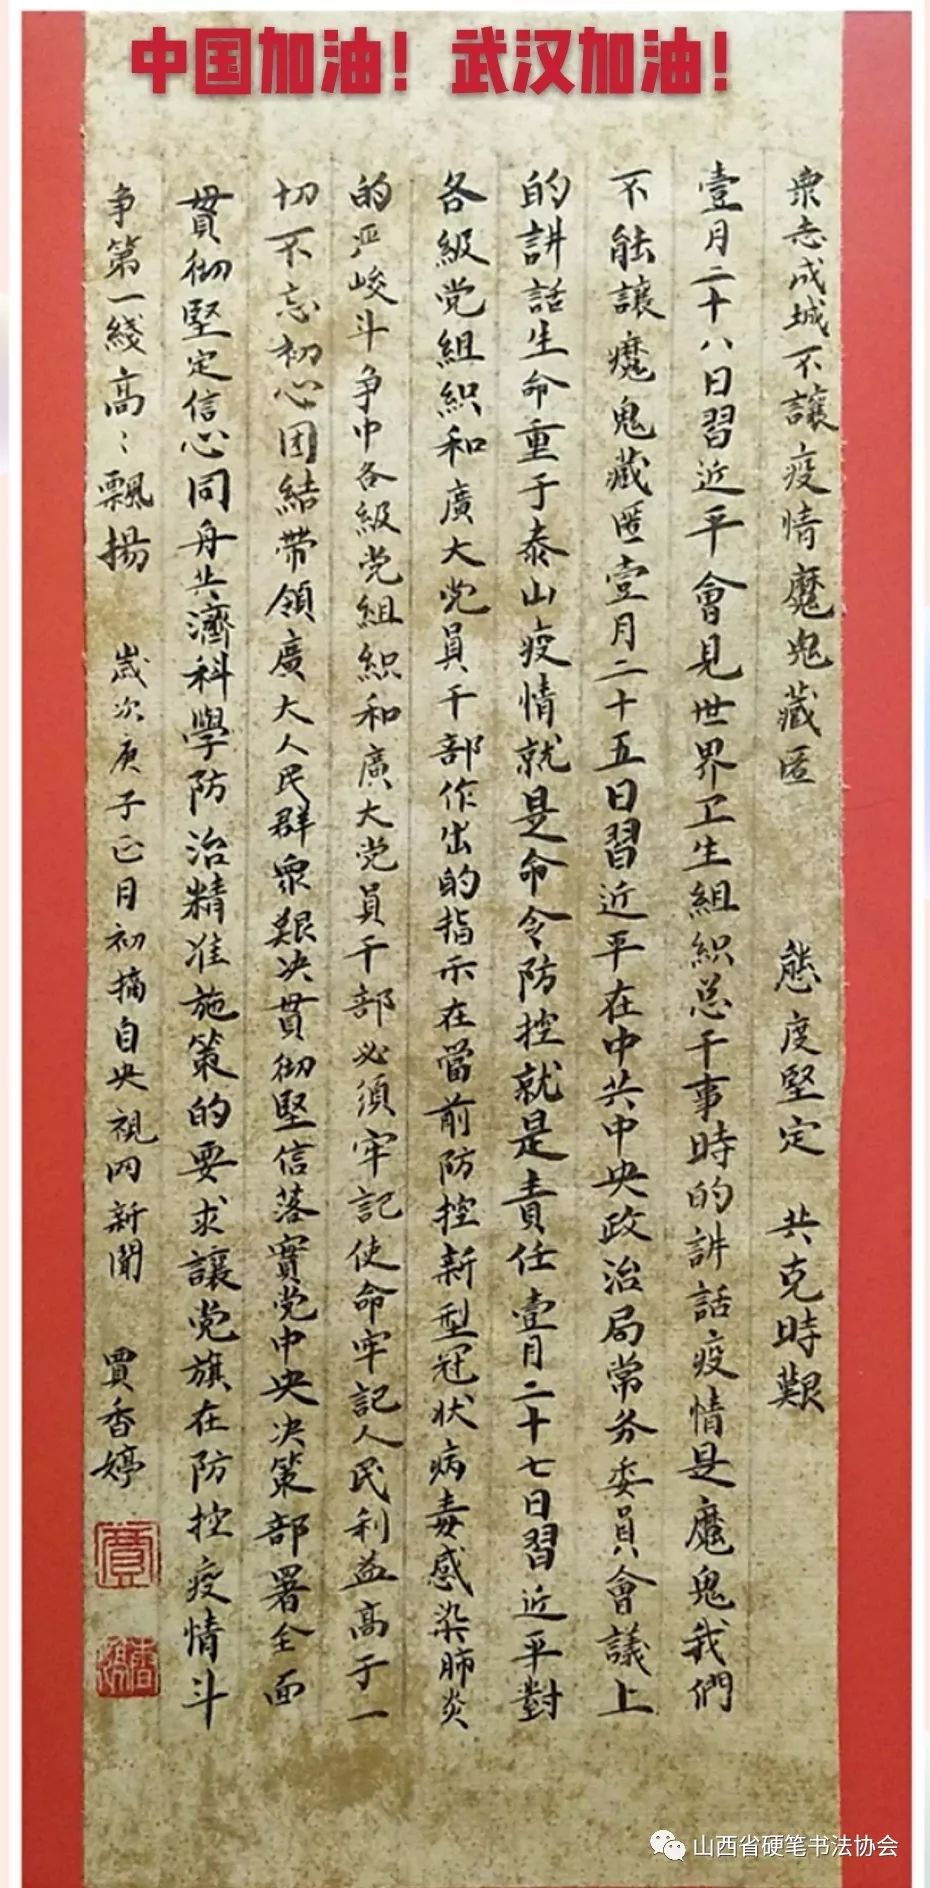 中国加油！武汉加油！
衆志成城不讓疫情魔鬼藏匿 態度堅定 共克時艱
壹月二十八日習近平會見世界卫生組織总干事時的講話疫情是魔鬼我們
不能讓魔鬼藏匿壹月二十五日習近平在中共中央政治局常务委員會議上
的講話生命重于泰山疫情就是命令防控就是責任壹月二十七日習近平對
各級党組织和廣大党員干部作出的指示在當前防控新型冠状病毒感染肺炎
的严峻斗争中各級党組织和廣大党員干部必须牢記使命牢記人民利益高于一
切不忘初心团結带領廣大人民群衆艱决貫彻堅信落實党中央决策部署全面
貫彻堅定信心同舟共濟科學防治精准施策的要求讓党旗在防控疫情斗
争第一綫高〻飄揚 歲次庚子正月初摘自央視网新聞 賈香婷
山西省硬笔书法协会